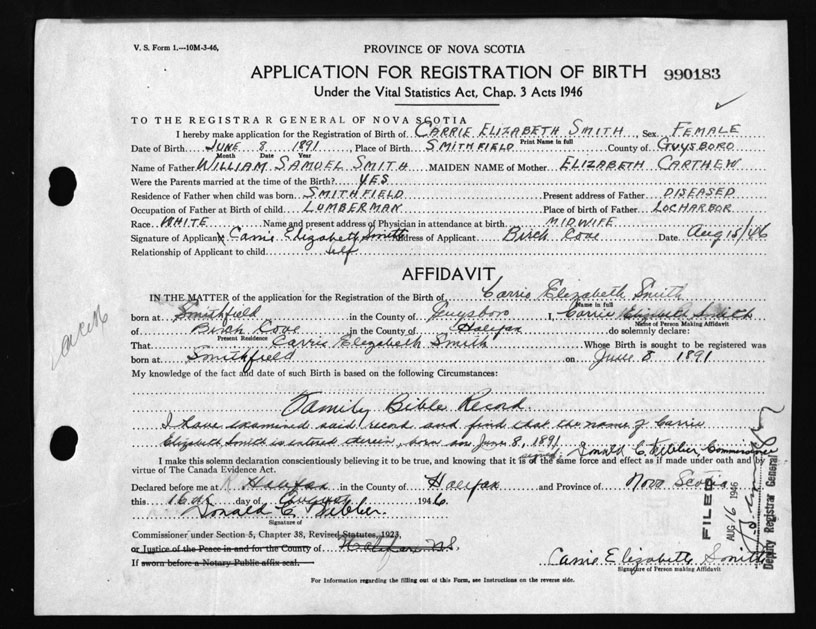 V. S. Form 1.—10M-3-46.
PROVINCE OF NOVA SCOTIA
APPLICATION FOR REGISTRATION OF BIRTH 990183
Under the Vital Statistics Act, Chap. 3 Acts 1946
TO THE REGISTRAR GENERAL OF NOVA SCOTIA
I hereby make application for the Registration of Birth of CARRIE ELIZABETH SMITH, Sex FEMALE
Print Name in full
Date of Birth JUNE 8 1891, Place of Birth SMITHFIELD County of GUYSBORO
Month Date Year
Name of Father WILLIAM SAMUEL SMITH MAIDEN NAME of Mother ELIZABETH CARTHEW
Were the Parents married at the time of the Birth? YES
Residence of Father when child was born SMITHFIELD Present address of Father DISEASED
Occupation of Father at Birth of child LUMBERMAN Place of birth of Father LOCHARBOR
Race WHITE Name and present address of Physician in attendance at birth MIDWIFE
Signature of Applicant x Carrie Elizabeth Smith Address of Applicant Birch Cove Date Aug 15/46
Relationship of Applicant to child self
AFFIDAVIT
IN THE MATTER of the application for the Registration of the Birth of Carrie Elizabeth Smith
Name in full
born at Smithfield in the County of Guysboro I, Carrie Elizabeth Smith
Name of Person Making Affidavit
of Birch Cove in the County of Halifax do solemnly declare:
Present Residence
That Carrie Elizabeth Smith Whose Birth is sought to be registered was
born at Smithfield on June 8 1891
My knowledge of the fact and date of such Birth is based on the following Circumstances:
Family Bible Record.
I have examined said record and find that the name of Carrie
Elizabeth Smith is entered therein, born on June 8, 1891
signed: Donald C. Commissioner
I make this solemn declaration conscientiously believing it to be true, and knowing that it is of the same force and effect as if made under oath and by
virtue of The Canada Evidence Act.
Declared before me at Halifax in the County of Halifax and Province of Nova Scotia
this 16th day of August 1946.
Donald C.
Signature of
Commissioner under Section 5, Chapter 38, Revised Statutes, 1923,
or Justice of the Peace in and for the County of Halifax N.S.
If sworn before a Notary Public affix seal.
Carrie Elizabeth Smith
Signature of Person making Affidavit
For Information regarding the filling out of this Form, see Instructions on the reverse side.
FILED
AUG 16 1946
Deputy Registrar General